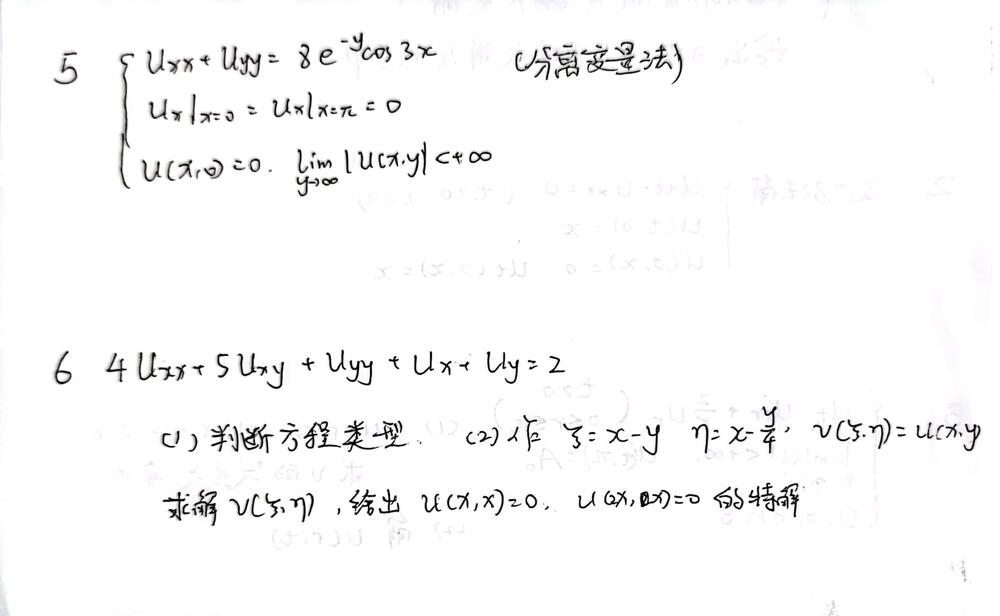 5 { Uxx + Uyy = 8e^{-y}cos3x (分离变量法)
Ux|x=0 = Ux|x=π = 0
U(x,0)=0. lim y→∞ |U(x,y)|<+∞
6 4Uxx + 5Uxy + Uyy + Ux + Uy = 2
(1) 判断方程类型. (2) 作 ξ=x-y η=x-y/4, v(ξ,η)=u(x,y)
求解 v(ξ,η), 给出 u(x,x)=0, u(x, x)=0 的特解